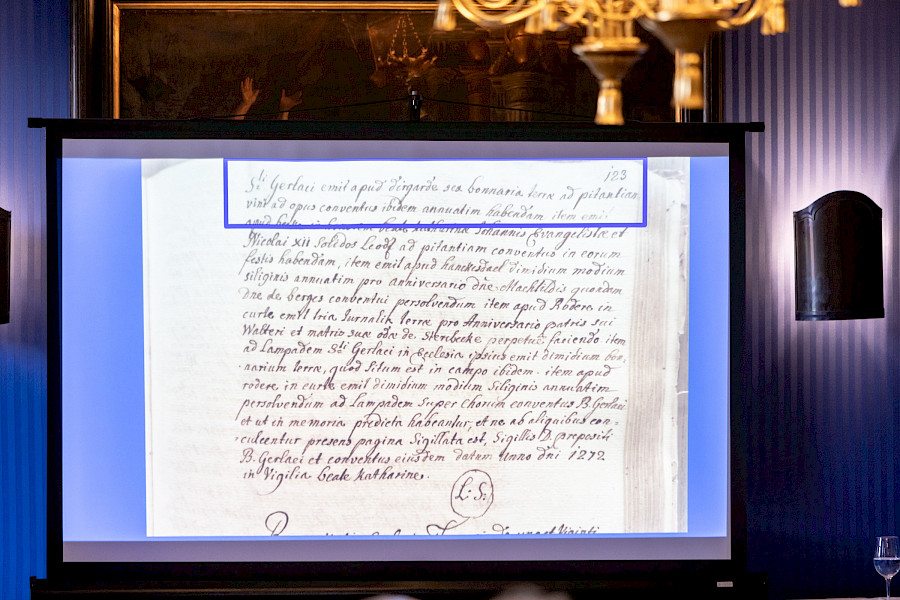 123
Sti Gerlaci emit apud dirgarde sex bonnaria terræ ad pitantiam
vini ad opus conventus ibidem annuatim habendam, item emit
apud beate Katharinæ Johannis Evangelistæ et
Nicolai XII Solidos Leod ad pitantiam conventus in eorum
festis habendam, item emit apud hanxesdael dimidium modium
siliginis annuatim pro anniversario dne Machtildis quondam
dne de berges conventui persolvendum item apud Rodere in
curte emit tria Jurnalia terræ pro Anniversario patris sui
Walteri et matris suæ odæ de Sterbecke perpetue faciendo item
ad Lampadem Sti Gerlaci in Ecclesia ipsius emit dimidium bon-
narium terræ, quod situm est in campo ibidem. item apud
rodere in curte emit dimidium modium Siliginis annuatim
persolvendum ad Lampadem Super Chorum conventus B. Gerlaci
et ut in memoria predicta habeantur, et ne ab aliquibus con=
culcentur presens pagina Sigillata est, Sigillis D. prepositi
B. Gerlaci et conventus eiusdem datum Anno dni 1272
in Vigilia beate Katharine.
L: S:
Viginti